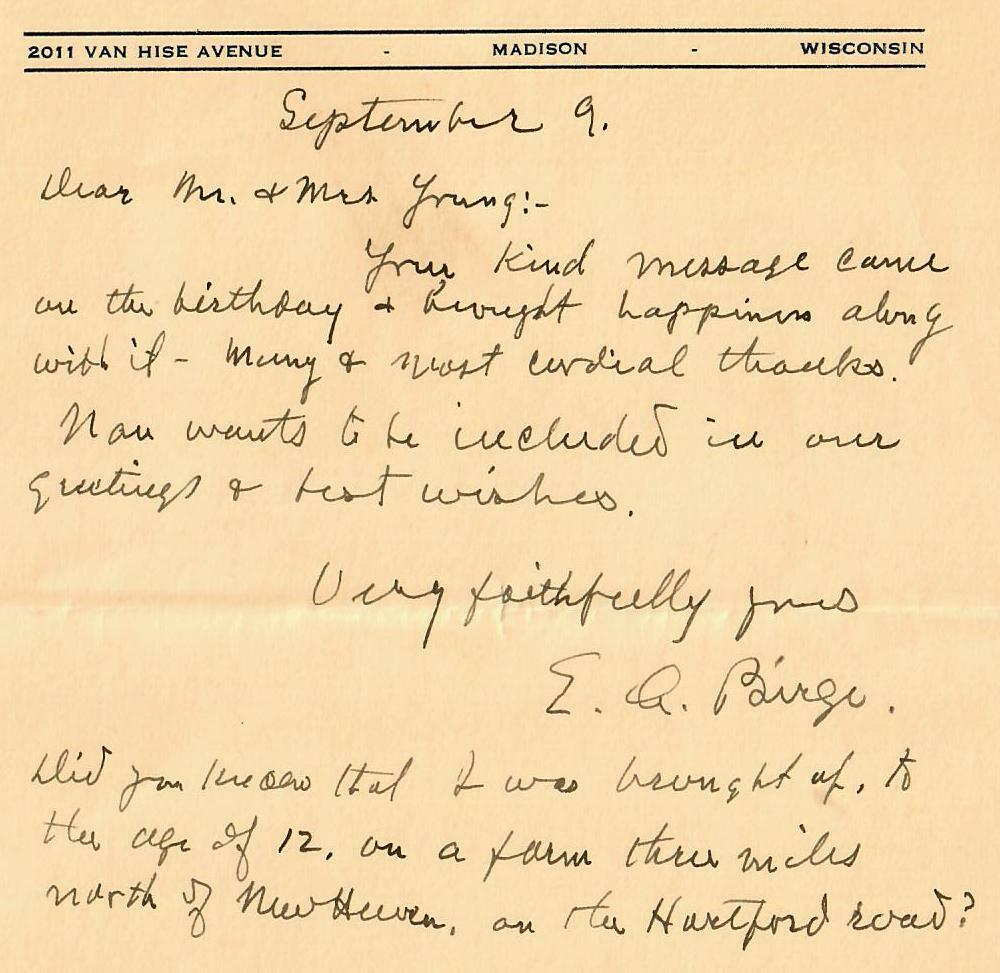 2011 VAN HISE AVENUE - MADISON - WISCONSIN
September 9.
Dear Mr. & Mrs Young:-
Your kind message came
on the birthday & brought happiness along
with it - Many & most cordial thanks.
Nan wants to be included in our
greetings & best wishes.
Very faithfully yours
E. A. Birge.
Did you know that I was brought up, to
the age of 12, on a farm three miles
north of New Haven, on the Hartford road?